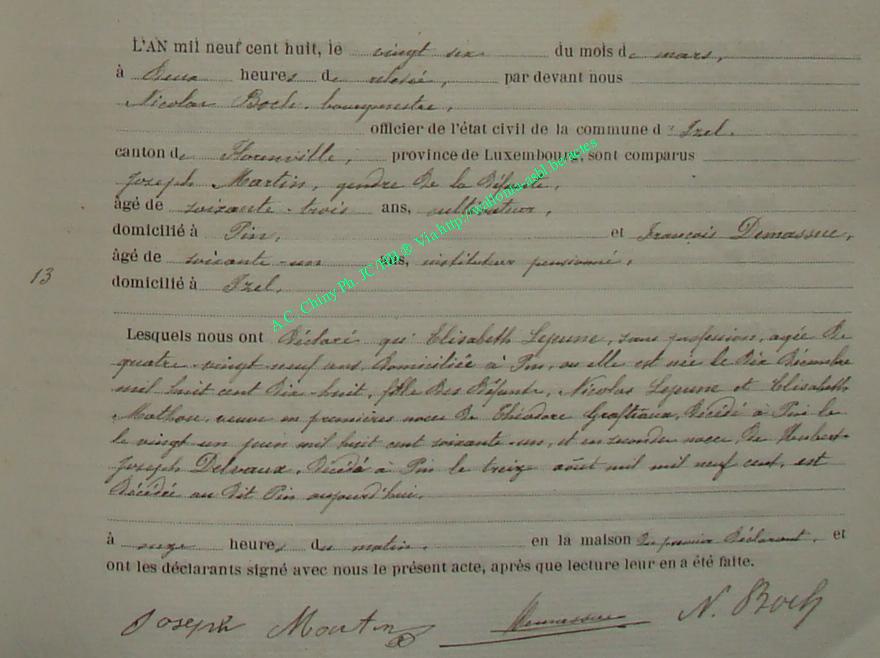 L'AN mil neuf cent huit, le vingt six du mois de mars,
à Deux heures de relevée, par devant nous
Nicolas Boch, bourgmestre,
officier de l'état civil de la commune d' Izel.
canton de Florenville, province de Luxembourg, sont comparus
Joseph Martin, gendre de la défunte,
âgé de soixante-trois ans, cultivateur,
domicilié à Pin, et François Demasure,
âgé de soixante-un ans, instituteur pensionné,
13
domicilié à Izel.
A.C. Chiny Ph. JC/HB ® Via http://wallonia-asbl.be/actes
Lesquels nous ont Déclaré qu' Elisabeth Lejeune, sans profession, agée de
quatre-vingt-neuf ans domiciliée à Pin, ou elle est née le dix décembre
mil huit cent dix-huit, fille des défunts, Nicolas Lejeune et Elisabeth
Mathou, veuve en premières noces de Théodore Grafteaux, décédé à Pin le
le vingt un juin mil huit cent soixante-un, et en secondes noces, de Hubert-
Joseph Delvaux, décédé à Pin le treize août mil mil neuf cent, est
décédée au dit Pin aujourd'hui,
à onze heures du matin, en la maison du premier déclarant, et
ont les déclarants signé avec nous le présent acte, après que lecture leur en a été faite.
Joseph Martin N. Boch